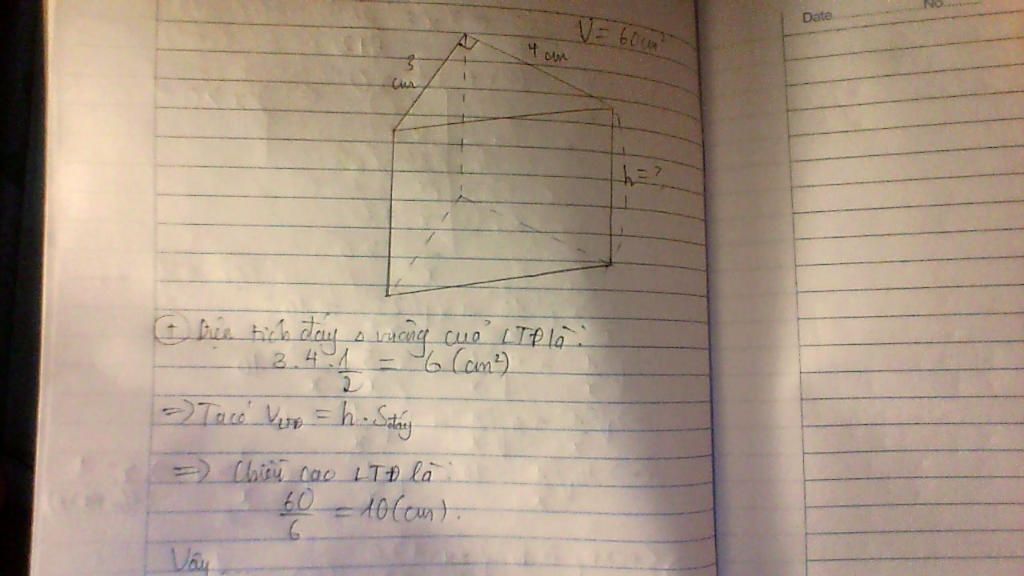 Date No.
V = 60cm³
3 cm
4 cm
h = ?
+ Diện tích đáy △ vuông của LTĐ là:
3.4.1/2 = 6 (cm²)
=> Ta có V LTĐ = h . S đáy
=> Chiều cao LTĐ là:
60/6 = 10 (cm).
Vậy